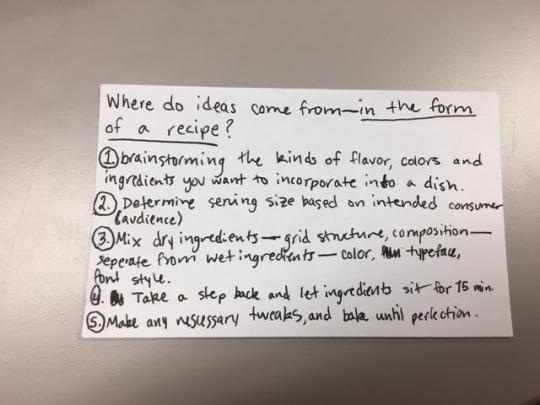 Where do ideas come from—in the form
of a recipe?
1. brainstorming the kinds of flavor, colors and
ingredients you want to incorporate into a dish.
2. Determine serving size based on intended consumer
(audience)
3. Mix dry ingredients — grid structure, composition —
seperate from wet ingredients — color, typeface,
font style.
4. Take a step back and let ingredients sit for 15 min.
5. Make any nescessary tweaks, and bake until perfection.